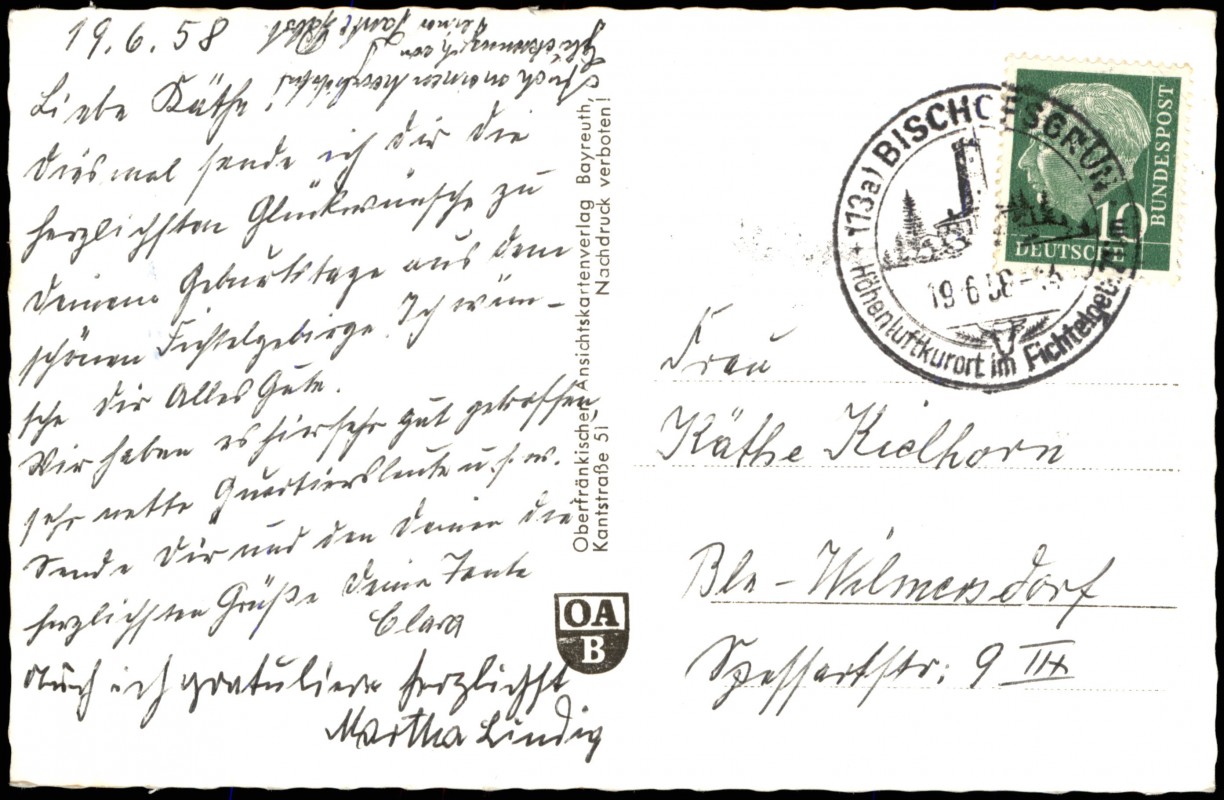 19.6.58
Liebe Käthe!
Diesmal sende ich dir die
herzlichsten Glückwünsche zu
Deinem Geburtstage aus dem
schönen Fichtelgebirge. Ich wün-
sche dir Alles Gute.
Wir haben es hier sehr gut getroffen
sehr nette Quartiersleute u.s.w.
Sende Dir und den Deinen die
herzlichsten Grüße Deine Tante
Clara
Auch ich gratuliere herzlichst
Martha Lindig
Auch von mir herzlichsten
Glückwunsch von
Deiner Tante
Oberfränkischer Ansichtskartenverlag Bayreuth,
Kantstraße 51 – Nachdruck verboten!
OA
B
(13a) BISCHOFSGRÜN
19.6.58
Höhenluftkurort im Fichtelgeb.
10
DEUTSCHE
BUNDESPOST
Frau
Käthe Kielhorn
Bln - Wilmersdorf
Spessartstr: 9 III